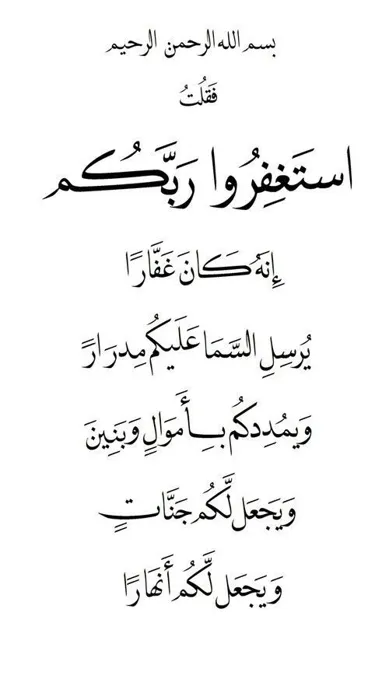 بسم الله الرحمن الرحيم
فَقُلتُ
استَغفِرُوا رَبَّكُم
إِنهُ كَانَ غَفَّارًا
يُرسِلِ السَّمَا عَلَيكُم مِدرَارًا
وَيمُدِدكُم بِأَموَالٍ وَبَنِينَ
وَيَجعَل لَّكُم جَنَّاتٍ
وَيَجعَل لَّكُم أَنهَارًا